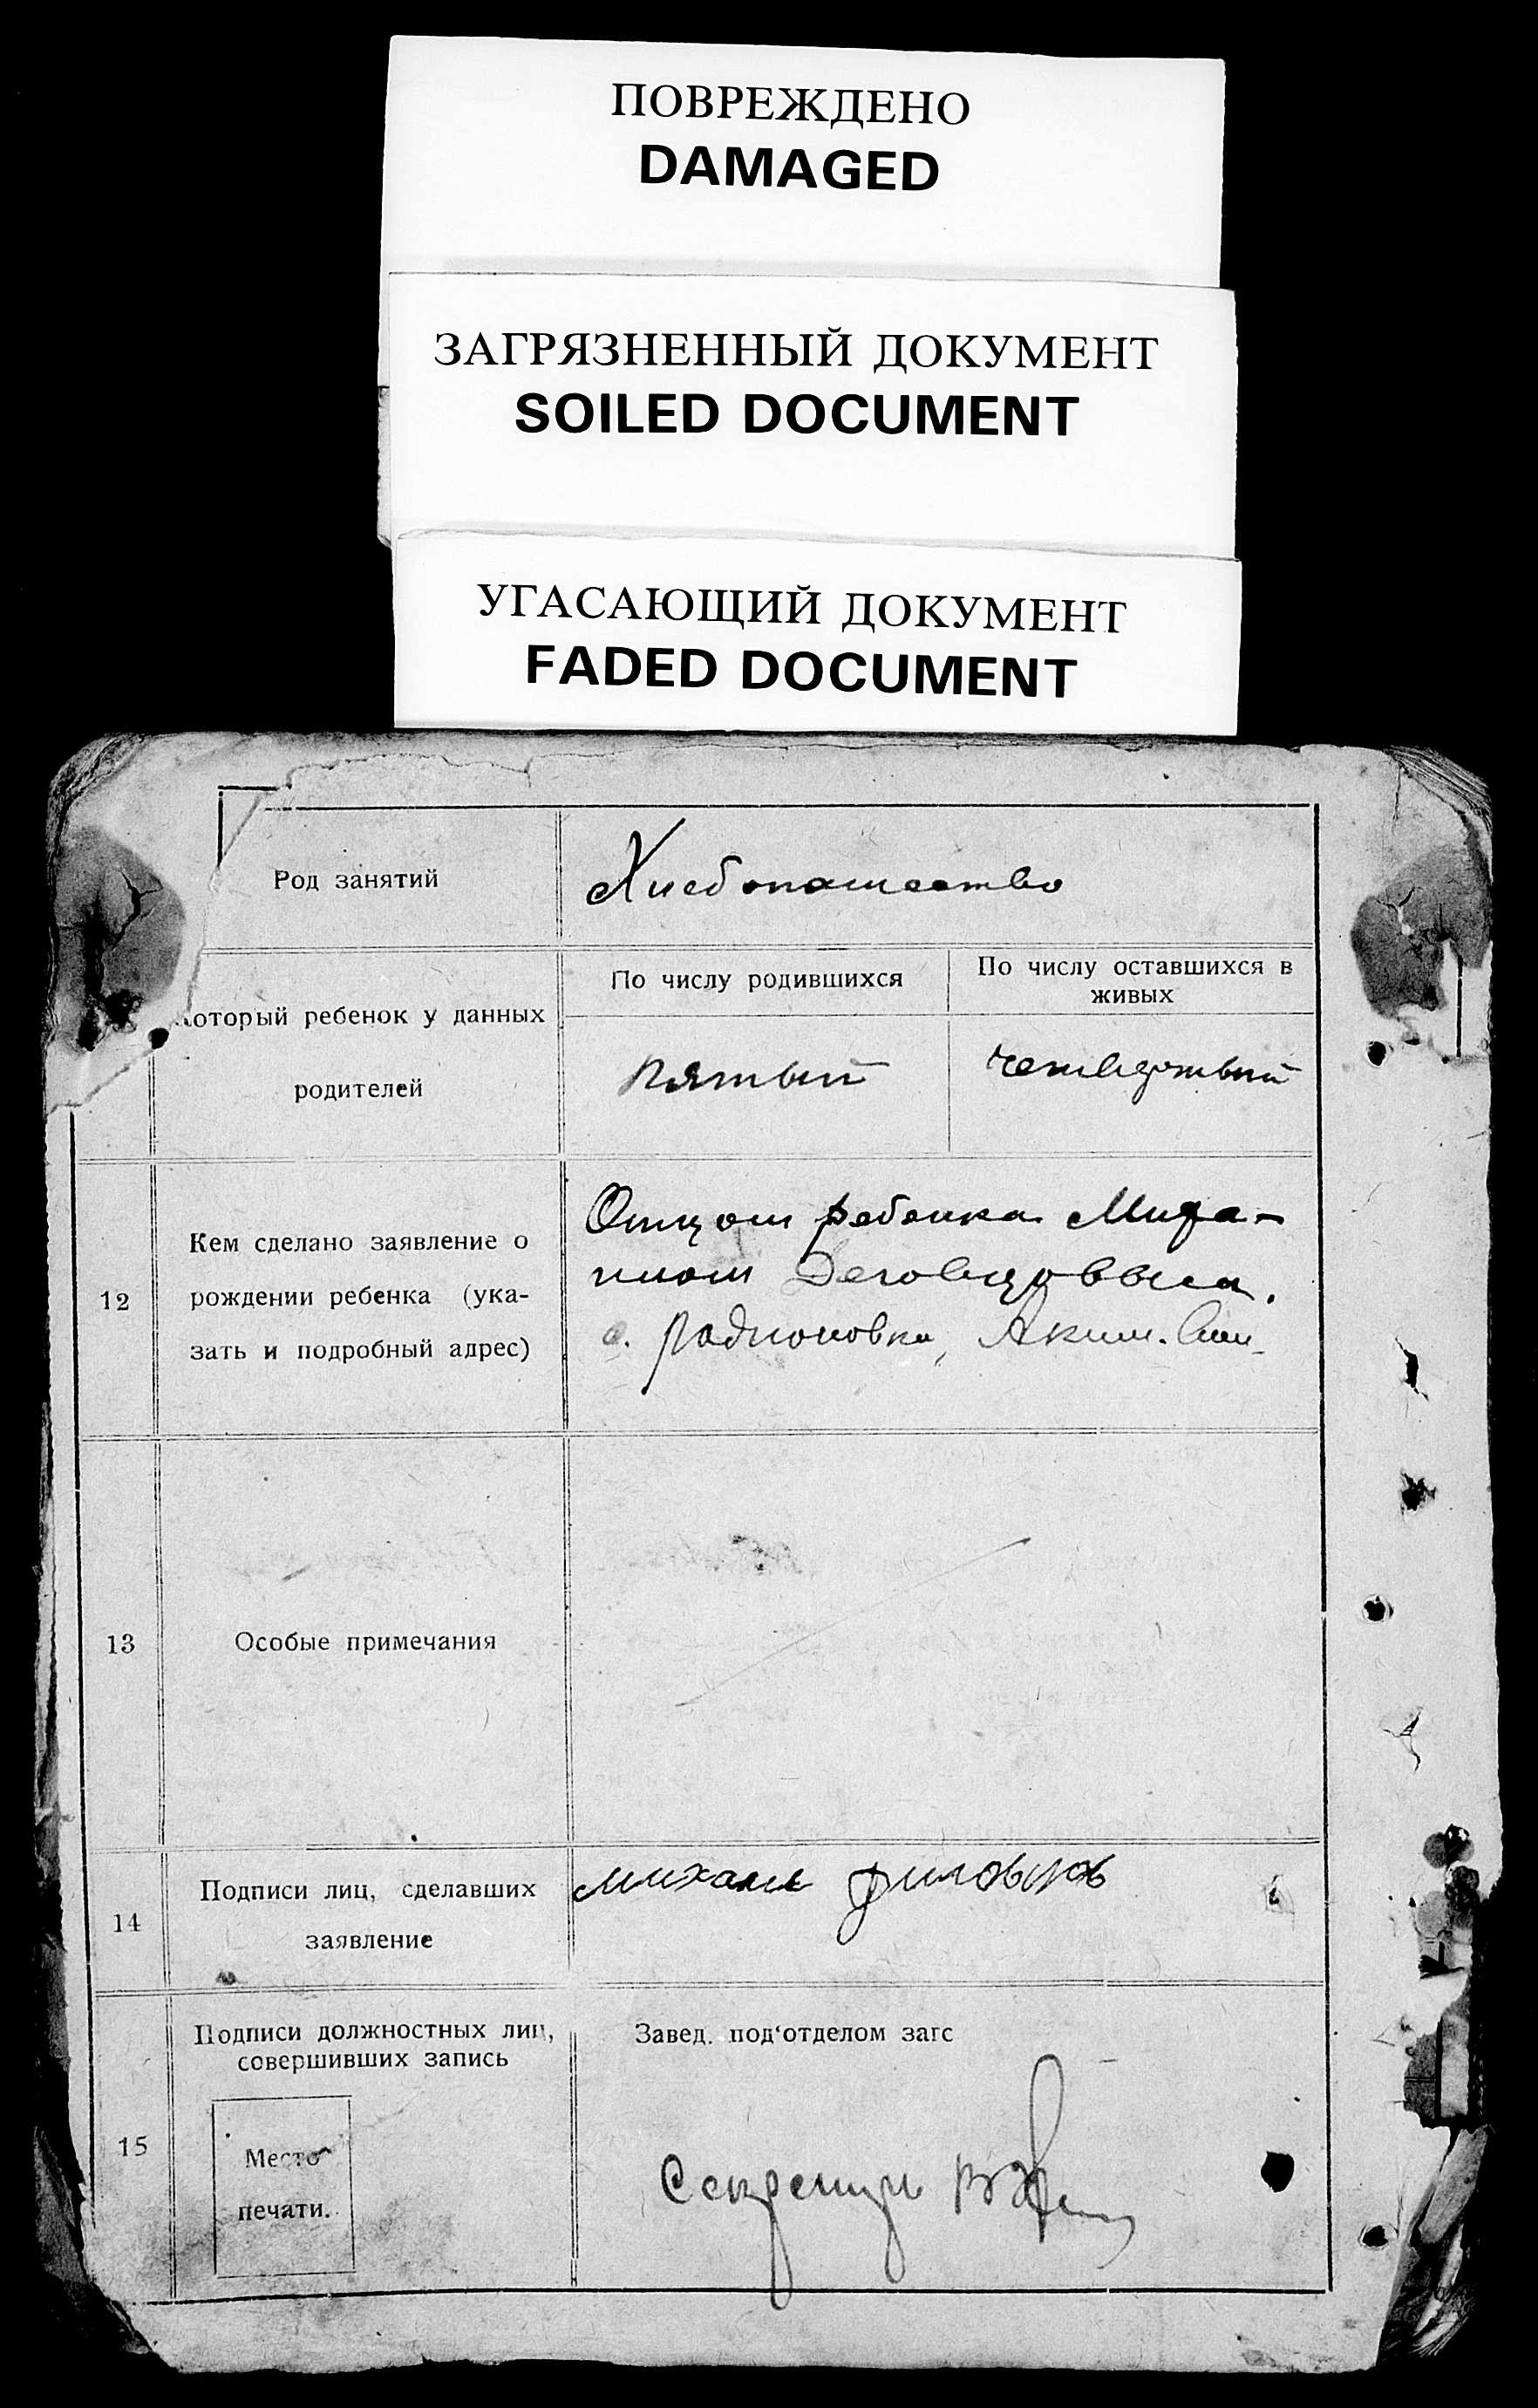 ПОВРЕЖДЕНО
DAMAGED
ЗАГРЯЗНЕННЫЙ ДОКУМЕНТ
SOILED DOCUMENT
УГАСАЮЩИЙ ДОКУМЕНТ
FADED DOCUMENT
Род занятий
Хлебопашество
который ребенок у данных
родителей
По числу родившихся
По числу оставшихся в
живых
пятый
четвертый
12
Кем сделано заявление о
рождении ребенка (ука-
зать и подробный адрес)
Отцом ребенка Миха-
илом
с. Родионовка, Аким.
13
Особые примечания
14
Подписи лиц, сделавших
заявление
Михаил
15
Подписи должностных лиц,
совершивших запись
Место
печати.
Завед. под‘отделом загс
Секретарь